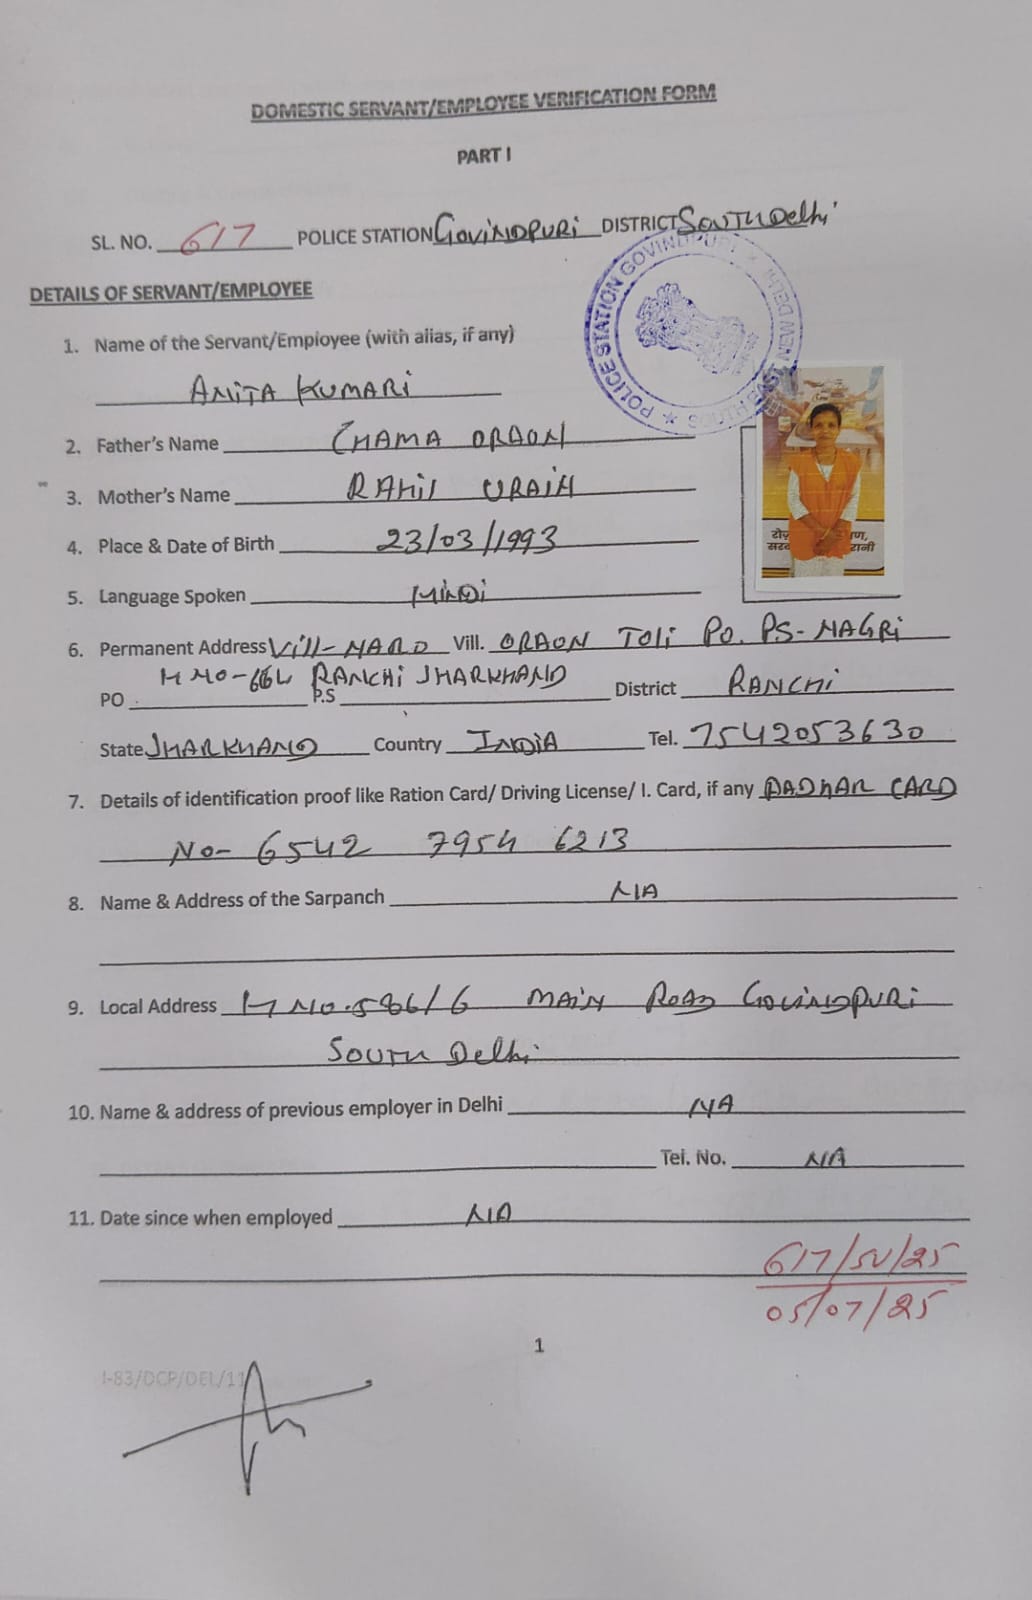 DOMESTIC SERVANT/EMPLOYEE VERIFICATION FORM
PART I
SL. NO. 617 POLICE STATION GOVINDPURI DISTRICT SOUTH Delhi
POLICE STATION GOVINDPURI ★ SOUTH EAST NEW DELHI ★
DETAILS OF SERVANT/EMPLOYEE
1. Name of the Servant/Employee (with alias, if any)
ANITA KUMARI
2. Father's Name CHAMA ORAON
3. Mother's Name RAHIL URAIN
4. Place & Date of Birth 23/03/1993
5. Language Spoken HINDI
6. Permanent Address Vill- NARO Vill. ORAON TOLI PO. PS- NAGRI
H NO-664 RANCHI JHARKHAND
PO P.S District RANCHI
State JHARKHAND Country INDIA Tel. 7542053630
7. Details of identification proof like Ration Card/ Driving License/ I. Card, if any AADHAR CARD
No- 6542 7954 6213
8. Name & Address of the Sarpanch N/A
9. Local Address H NO. 586/6 MAIN ROAD GOVINDPURI
SOUTH Delhi
10. Name & address of previous employer in Delhi NA
Tel. No. N/A
11. Date since when employed N/A
617/SV/25
05/07/25
1
I-83/DCP/DEL/11